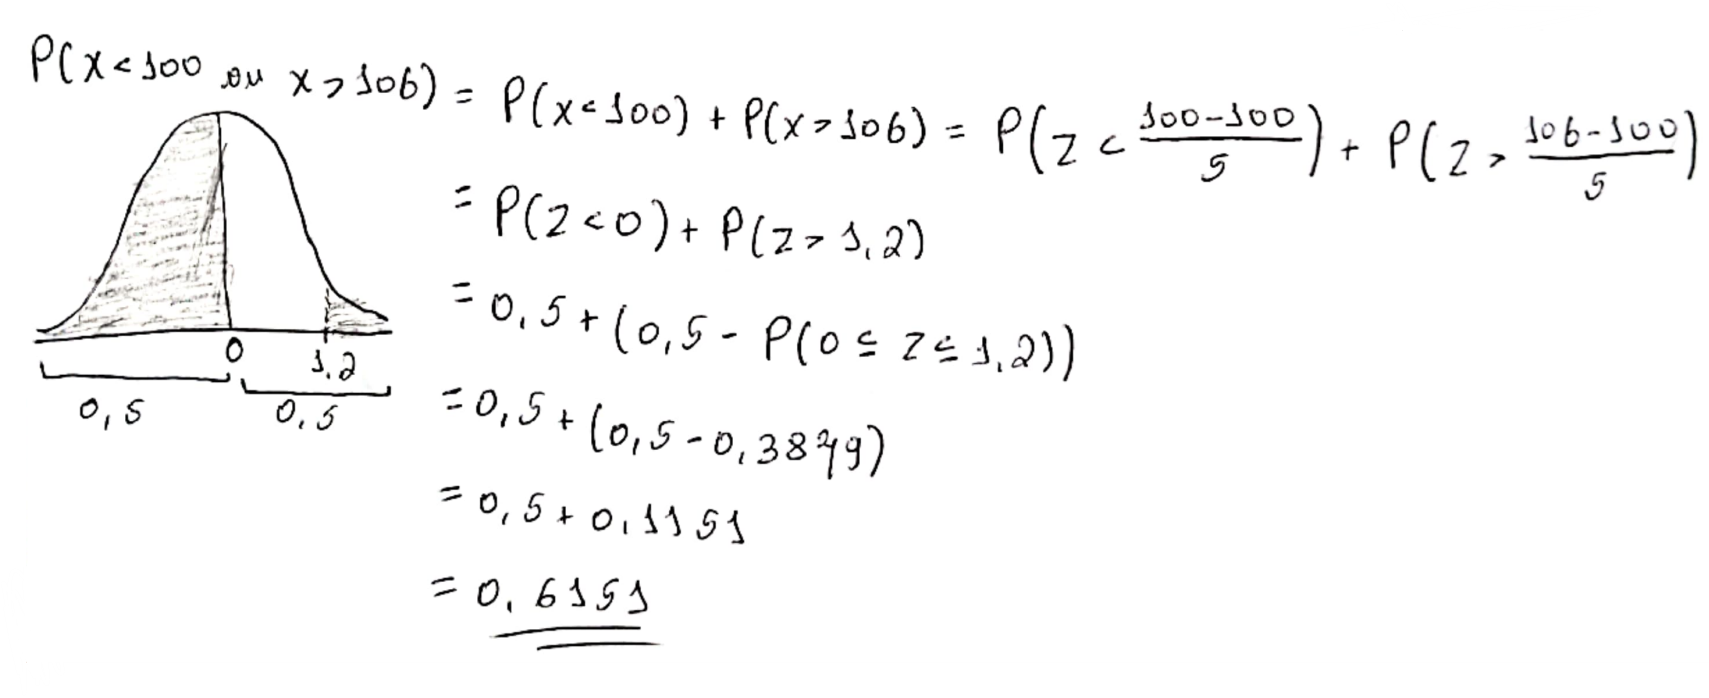 P(x<100 ou x>106) = P(x<100) + P(x>106) = P(z < (100-100)/5) + P(z > (106-100)/5)
= P(z<0) + P(z>1,2)
= 0,5 + (0,5 - P(0 ≤ z ≤ 1,2))
= 0,5 + (0,5 - 0,3849)
= 0,5 + 0,1151
= 0,6151
0 1,2
0,5 0,5